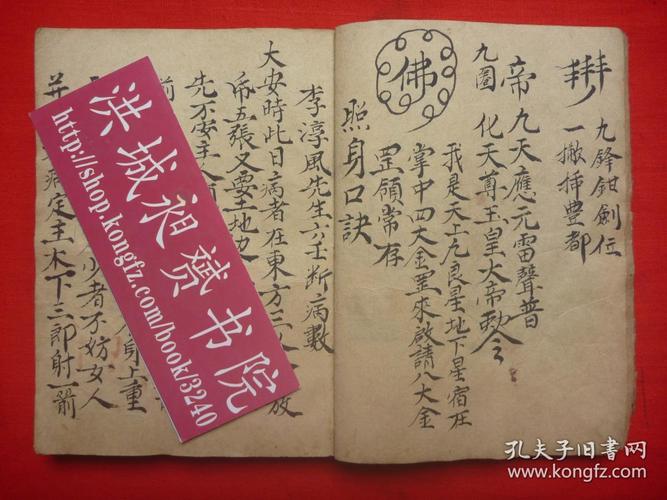 九鋒鉗劍位
一撇揷豊都
帝九天應元雷聲普
九圖化天尊玉皇大帝勅令
佛
我是天上九良星地下星宿在
掌中四大金罡來啟請八大金
罡領常存
照身口訣
李淳風先生六壬断病數
大安時此日病者在東方三
放
帋五張又要土地
先不安主人
前
身上重
少者不妨女人
病定主木下三郎射一箭
洪城昶赟书院
http://shop.kongfz.com/book/3240
孔夫子旧书网
www.kongfz.com